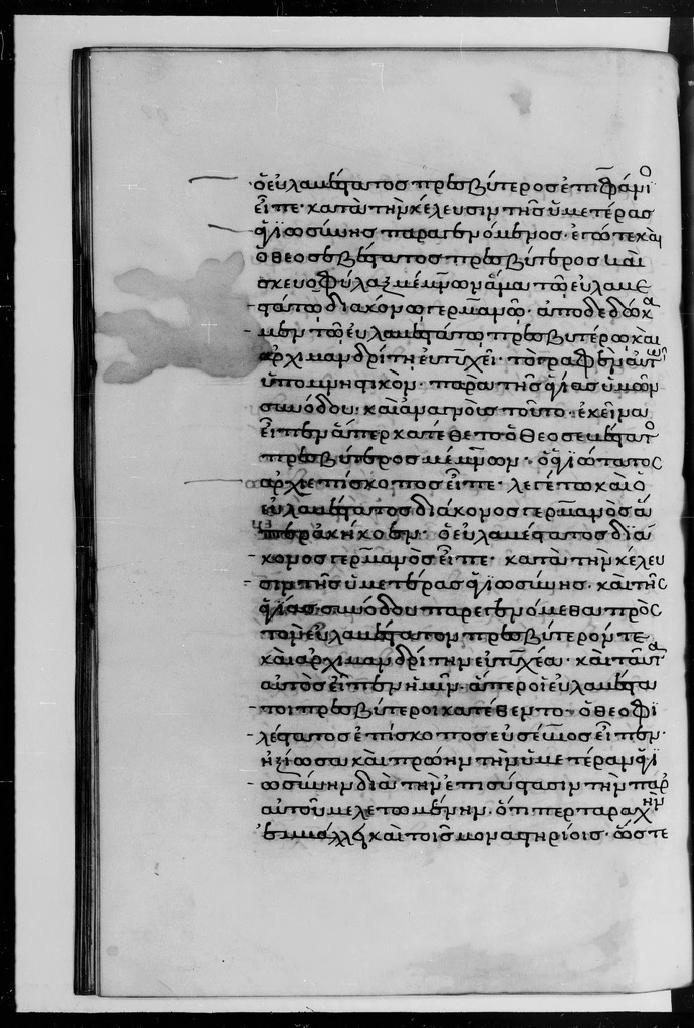 ὁ εὐλαβέστατος πρεσβύτερος ἐπιφάνιο
εἶπε· κατὰ τὴν κέλευσιν τῆς ὑμετέρας
ἁγιωσύνης παραγενόμενος· ἐγώ τε καὶ
ὁ θεοσεβέστατος πρεσβύτερος καὶ
σκευοφύλαξ μέμνων ἅμα τῷ εὐλαβε
στάτῳ διακόνῳ γερμανῷ· ἀποδεδώκα
μεν τῷ εὐλαβεστάτῳ πρεσβυτέρῳ καὶ
ἀρχιμανδρίτῃ εὐτυχεῖ· τὸ γραφὲν αὐτῶ
ὑπομνηστικὸν· παρὰ τῆς ἁγίας ὑμῶν
συνόδου· καὶ ἀναγνοὺς τοῦτο· ἐκεῖνα
εἶπεν ἅπερ κατέθετο ὁ θεοσεβέστατο
πρεσβύτερος μέμνων· ὁ ἁγιώτατος
ἀρχιεπίσκοπος εἶπε· λεγέτω καὶ ὁ
εὐλαβέστατος διάκονος γερμανὸς ἅ
περ ἀκήκοεν· ὁ εὐλαβέστατος διά
κονος γερμανὸς εἶπε· κατὰ τὴν κέλευ
σιν τῆς ὑμετέρας ἁγιωσύνης· καὶ τῆς
ἁγίας συνόδου παρεγενόμεθα πρὸς
τὸν εὐλαβέστατον πρεσβύτερόν τε
καὶ ἀρχιμανδρίτην εὐτυχέα· καὶ ταῦτα
αὐτὸς εἶπεν ἡμῖν· ἅπερ οἱ εὐλαβέστα
τοι πρεσβύτεροι κατέθεντο· ὁ θεοφι
λέστατος ἐπίσκοπος εὐσέβιος εἶπεν·
ἠξίωσα καὶ πρώην τὴν ὑμετέραν ἁγι
ωσύνην διὰ τὴν ἐπισύστασιν τὴν παρ
αὐτοῦ μελετωμένην· ὅτιπερ ταραχὴν
ἐμβάλλει καὶ τοῖς μοναστηρίοις· ὥστε